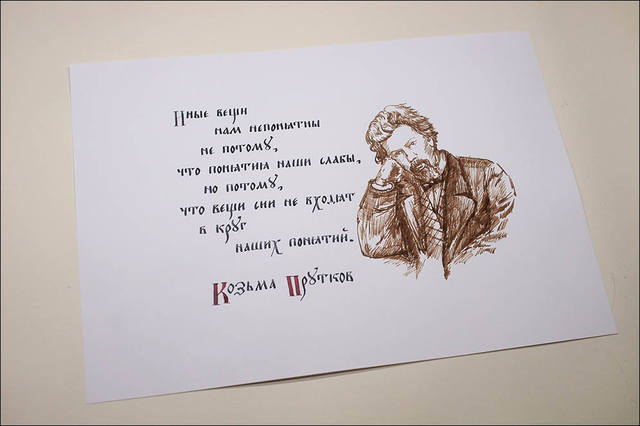 Иные вещи
нам непонятны
не потому,
что понятия наши слабы,
но потому,
что вещи сии не входят
в круг
наших понятий.
Козьма Прутков